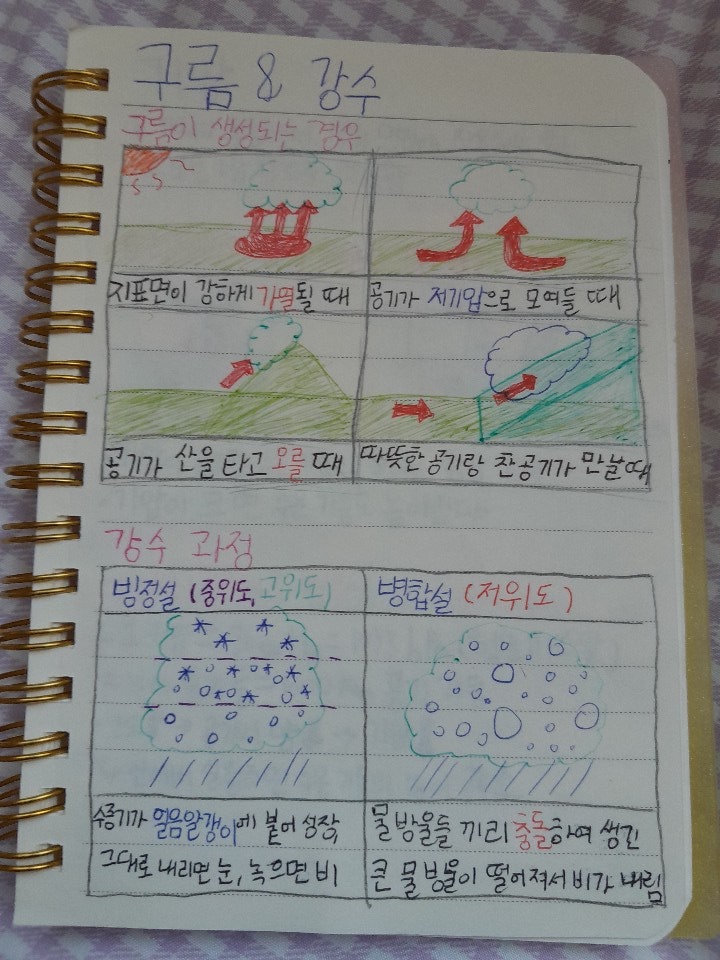 구름 & 강수
구름이 생성되는 경우
지표면이 강하게 가열될 때
공기가 저기압으로 모여들 때
공기가 산을 타고 오를 때
따뜻한 공기랑 찬공기가 만날 때
강수 과정
빙정설 (중위도, 고위도)
병합설 (저위도)
수증기가 얼음알갱이에 붙어 성장,
그대로 내리면 눈, 녹으면 비
물방울들 끼리 충돌하여 생긴
큰 물방울이 떨어져서 비가 내림